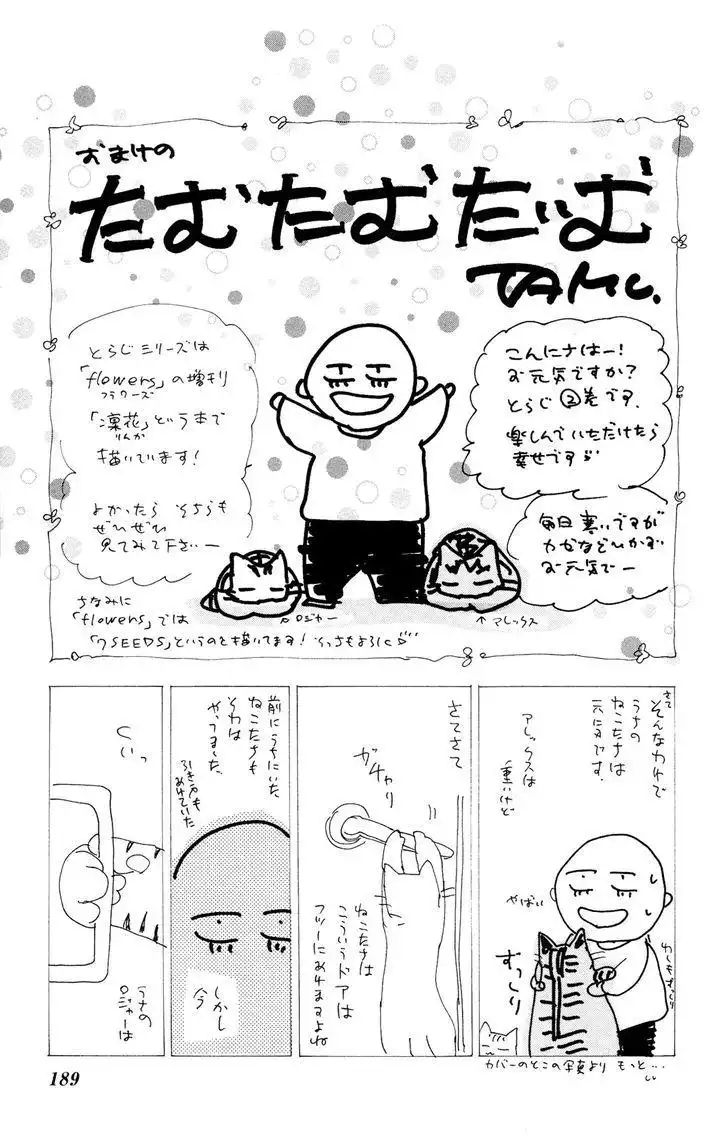 おまけの
たむたむたいむ
TAMU.
こんにちはー!
お元気ですか?
とらじ②巻です.
楽しんでいただけたら
幸せです
毎日寒いですが
カゼなどひかず
お元気でー
とらじシリーズは
「flowers」の増刊
フラワーズ
「凛花」という本で
りんか
描いています!
よかったら そちらも
ぜひぜひ
見てみて下さいー
ちなみに
「flowers」では
「7SEEDS」というのを描いてます! そっちもよろしく
ロジャー
↑アレックス
さて
そんなカンジで
うちの
ねこたちは
元気です.
アレックスは
重いけど
やばい
ずっしり
カバーのとこの写真より もっと…
さてさて
ガチャリ
ねこたちは
こういうドアは
フツーにあけますよね
前にうちにいた
ねこたちも
それは
やってました.
引き戸も
あけていた
しかし
今
うちの
ロジャーは
くいっ
189